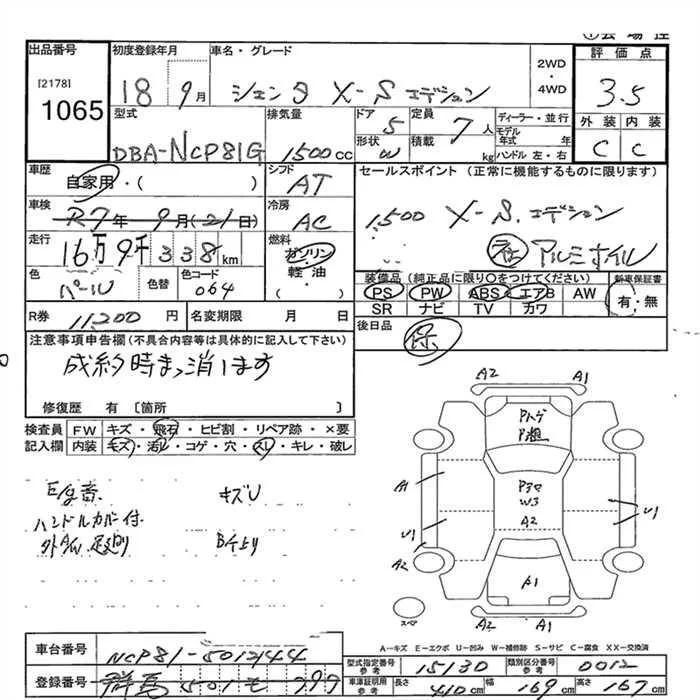 出品番号
[2178]
1065
初度登録年月
18 9月
車名・グレード
シエンタ X-Sエディション
2WD
・
4WD
評価点
3.5
外装 内装
C C
型式
DBA-NCP81G
排気量
1500cc
ドア
5
形状
W
定員
7人
積載
kg
ディーラー・並行
モデル年式 年
ハンドル 左・右
車歴
自家用・( )
車検
R7年 9月(21日)
走行
16万9千338km
色
パール
色替
色コード
064
シフト
AT
冷房
AC
燃料
ガソリン
軽・油
( )
セールスポイント(正常に機能するものに限ります)
1,500 X-S.エディション
社 アルミホイル
装備品(純正品に限り○をつけてください)
PS PW ABS エアB AW
SR ナビ TV カワ
新車保証書
有・無
後日品
保
R券 11,200円
名変期限 月 日
注意事項申告欄(不具合内容等は具体的に記入して下さい)
成約時まっ消します
修復歴 有〔箇所 〕
検査員記入欄
FW キズ・飛石・ヒビ割・リペア跡・×要
内装 キズ・汚レ・コゲ・穴・スレ・キレ・破レ
キズU
ハンドルカバー付
A2 A1
A1
A2
U1
A2
U1
A1
A2 A1
スペア
A-キズ E-エクボ U-凹み W-補修跡 S-サビ C-腐食 XX-交換済
車台番号
NCP81-5012144
登録番号
群馬501
型式指定番号
参考
15130
類別区分番号
参考
0012
車庫証明用
参考
長さ 410cm
幅 169cm
高さ 167cm